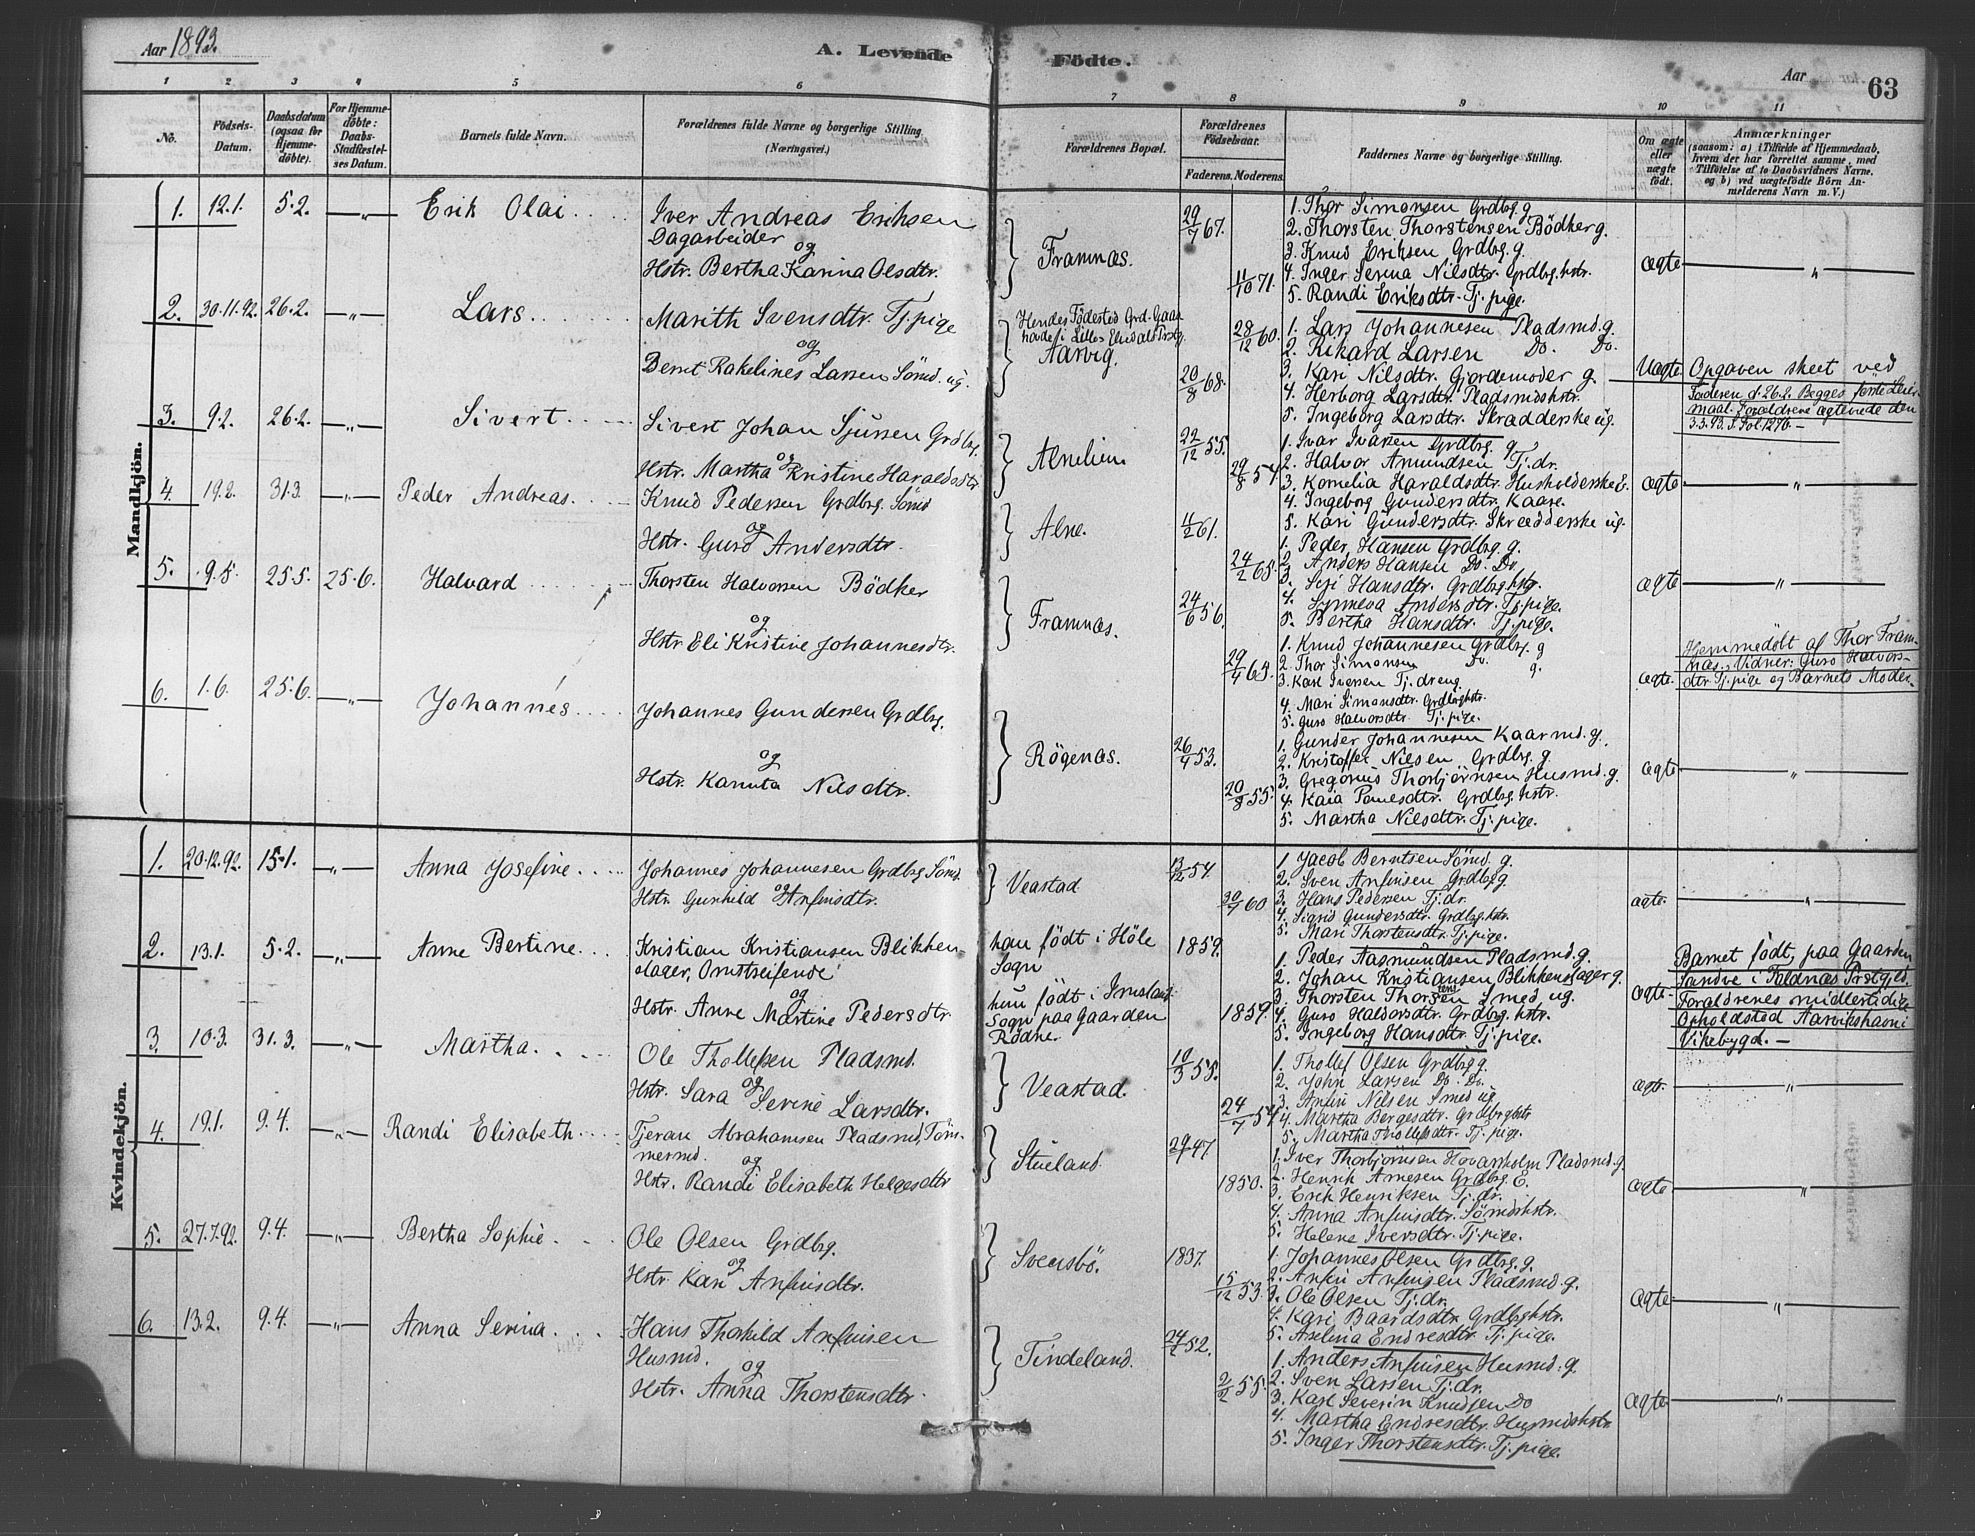 Aar 1893.
A. Levende Födte.
Aar
63
1 2 3 4 5 6 7 8 9 10 11
No.
Födsels-Datum.
Daabsdatum (ogsaa for Hjemme-döbte).
For Hjemme-döbte: Daabs-Stadfæstel-ses Datum.
Barnets fulde Navn.
Forældrenes fulde Navne og borgerlige Stilling. (Næringsvei.)
Forældrenes Bopæl.
Forældrenes Födselsaar.
Faderens. Moderens.
Faddernes Navne og borgerlige Stilling.
Om ægte eller uægte födt.
Anmærkninger
(saasom: a) i Tilfælde af Hjemmedaab, hvem der har forrettet samme, med Tilföielse af to Daabsvidners Navne, og b) ved uægtefödte Börn An-melderens Navn m. V.)
Mandkjön.
1. 12.1. 5.2. —„— Erik Olai
Iver Andreas Eriksen
Dagarbeider
og
Hstr. Bertha Karina Olsdtr.
Framnæs.
29/7 67.
11/10 71.
1. Thor Simonsen Grdbrg. g.
2. Thorsten Thorstensen Bödker g.
3. Knud Eriksen Grdbrg. g.
4. Inger Serina Nilsdtr. Grdbrg.hstr.
5. Randi Eriksdtr. Tj. pige.
Ægte —„—
2. 30.11.92. 26.2. —„— Lars
Marith Svensdtr. Tj. pige
og
Berret Rakelines Larsen Sömd. ug.
Hendes Födested Grd.
Aarvig.
28/12 60.
20/8 68.
1. Lars Johannesen Pladsmd. g.
2. Rikard Larsen Do. Do.
3. Kari Nilsdtr. Gjordemoder g.
4. Herborg Larsdtr. Pladsmdshstr.
5. Ingeborg Larsdtr. Skrædderske ug.
Uægte
Opgaven skeet ved
Faderen d. 26.2. Begges förste Leier-
maal. Forældrene ægteviede den
3.3.93. S. Fol. 127b —
3. 9.2. 26.2. —„— Sivert
Sivert Johan Sjursen Grdbrg.
og
Hstr. Martha Kristine Haraldsdtr
Alnelien
22/12 55.
29/8 54
1. Ivar Ivarsen Grdbrg. g.
2. Halvor Amundsen Tj. dr.
3. Kornelia Haraldsdtr. Husholderske E.
4. Ingeborg Gundersdtr. Kaare.
5. Kari Gundersdtr. Skrædderske ug.
ægte —„—
4. 19.2. 31.3. —„— Peder Andreas.
Knud Pedersen Grdbrg. Sömd
og
Hstr. Guro Andersdtr.
Alne.
11/2 61.
24/2 65.
1. Peder Hansen Grdbrg. g.
2. Anders Hansen Do. Do.
3. Siri Hansdtr. Grdbrg.hstr.
4. Synneva Andersdtr. Tj. pige.
5. Bertha Hansdtr. Tj. pige.
ægte —„—
5. 9.5. 25.5. 25.6. Halvard
Thorsten Halvorsen Bödker
og
Hstr. Eli Kristine Johannesdtr.
Framnæs.
24/6 56.
29/4 65.
1. Knud Johannesen Grdbrg. g
2. Thor Simonsen Do. g.
3. Karl Iversen Tj. dreng
4. Mari Simonsdtr. Grdbrghstr.
5. Guro Halvorsdtr. Tj. pige.
Ægte.
Hjemmedöbt af Thor Fram-
næs. Vidner: Guro Halvors-
dtr Tj. pige og Barnets Moder.
6. 1.6. 25.6. —„— Johannes
Johannes Gundersen Grdbrg.
og
Hstr. Kanuta Nilsdtr.
Rögenæs.
26/4 53.
20/8 55.
1. Gunder Johannesen Kaarmd. g.
2. Kristoffer Nilsen Grdbrg. g
3. Gregorius Thorbjörnsen Husmd. g.
4. Kaia Poulsdtr. Grdbrg. hstr.
5. Martha Nilsdtr. Tj. pige.
Ægte —„—
Kvindekjön.
1. 20.12.92. 15.1. —„— Anna Josefine
Johannes Johannesen Grdbrg. Sömd.
og
Hstr. Gunhild Anfinsdtr.
Veastad
13/2 54
30/7 60
1. Jacob Berntsen Sömd. g.
2. Sven Anfinsen Grdbrg g
3. Hans Pedersen Tj. dr.
4. Sigrid Gundersdtr. Grdbg.hstr.
5. Mari Thorstensdtr. Tj. pige.
ægte. —„—
2. 13.1. 5.2. —„— Anne Bertine
Kristian Kristiansen Blikken-
slager, Omstreifende
og
Hstr. Anne Martine Pedersdtr
han födt i Höle
Sogn
hun födt i Imsland
Sogn paa Gaarden
Rödne.
1859.
1859.
1. Peder Aasmundsen Pladsmd. g.
2. Johan Kristiansen Blikkenslager g.
3. Thorsten Thorstensen Smed ug.
4. Guro Haldorsdtr. Grdbg. hstr.
5. Ingeborg Hansdtr. Tj. pige.
Ægte.
Barnet födt paa Gaarden
Sandve i Skaldnæs Prstgjld.
Forældrenes midlertidige
Opholdsted Aarvikshavn i
Vikebygd. —
3. 10.3. 31.3. —„— Martha.
Ole Thollefsen Pladsmd.
og
Hstr. Sara Serine Larsdtr.
Veastad.
10/3 55.
24/7 54
1. Thollef Olsen Grdbrg g.
2. John Larsen Do. Do.
3. Anfin Nilsen Smed ug
4. Martha Bergesdtr. Grdbrghstr
5. Martha Thollefsdtr. Tj. pige.
ægte. —„—
4. 19.1. 9.4. —„— Randi Elisabeth
Tjeran Abrahamsen Pladsmd, Töm-
mermd.
og
Hstr. Randi Elisabeth Helgesdtr
Stueland.
47.
1850.
1. Iver Thorbjörnsen Hovarsholm Pladsmd. g.
2. Henrik Arnesen Grdbg. E.
3. Erik Henriksen Tj. dr.
4. Anna Anfinsdtr. Sömdshstr.
5. Helene Iversdtr. Tj. pige.
Ægte —„—
5. 27.7.92. 9.4. —„— Bertha Sophie.
Ole Olsen Grdbrg.
og
Hstr. Kari Anfinsdtr.
Svensbö.
1837.
15/12 53.
1. Johannes Olsen Grdbrg. g.
2. Anfin Anfinsen Pladsmd. g.
3. Ole Olsen Tj. dr.
4. Kari Baardsdtr. Grdbrghstr.
5. Aselina Endresdtr. Tj. pige.
Ægte —„—
6. 13.2. 9.4. —„— Anna Serina.
Hans Thorkild Anfinsen
Husmd.
og
Hstr. Anna Thorstensdtr.
Tindeland.
52.
2/2 55.
1. Anders Anfinsen Husmd. g.
2. Sven Larsen Tj. dr.
3. Karl Severin Knudsen Do
4. Martha Endresdtr. Husmdshstr
5. Inger Thorstensdtr. Tj. pige.
Ægte —„—